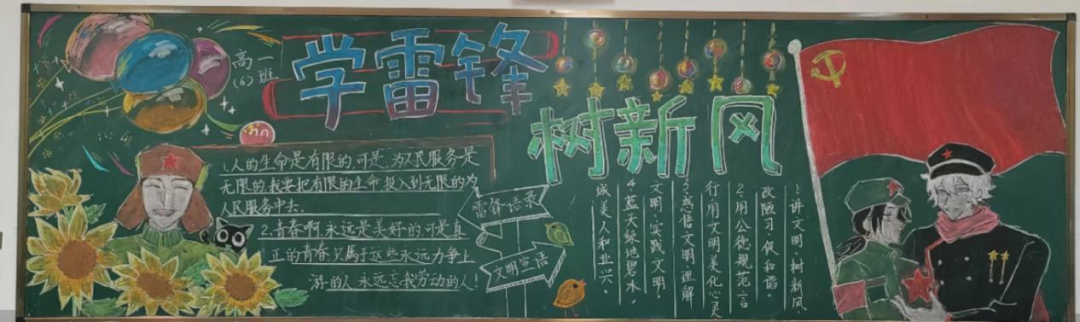 高一
(6)班
学雷锋
树新风
1.人的生命是有限的可是,为人民服务是
无限的,我要把有限的生命,投入到无限的为
人民服务中去.
2.青春啊,永远是美好的,可是真
正的青春,只属于这些永远力争上
游的人,永远忘我劳动的人!
雷锋语录
文明宣语
1.讲文明·树新风,
改陋习 促和谐。
2.用公德规范言
行·用文明美化心灵
3.感悟文明·理解
文明·实践文明。
4.蓝天绿地碧水,
城美人和业兴。